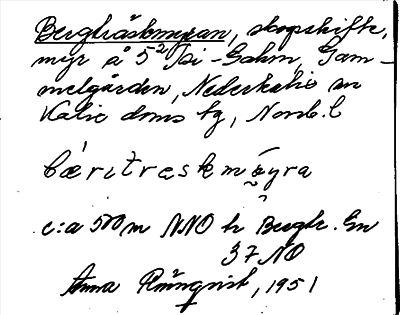 Bergträskmyran, skogsskifte,
myr å 5² Pi-Gahm, Gam-
melgården, Nederkalix sn
Kalix doms tg, Norrb. l
bæritræskmyra
c:a 500 m NNO h Bergtr. En
37 NO
Anna Rönnqvist, 1951